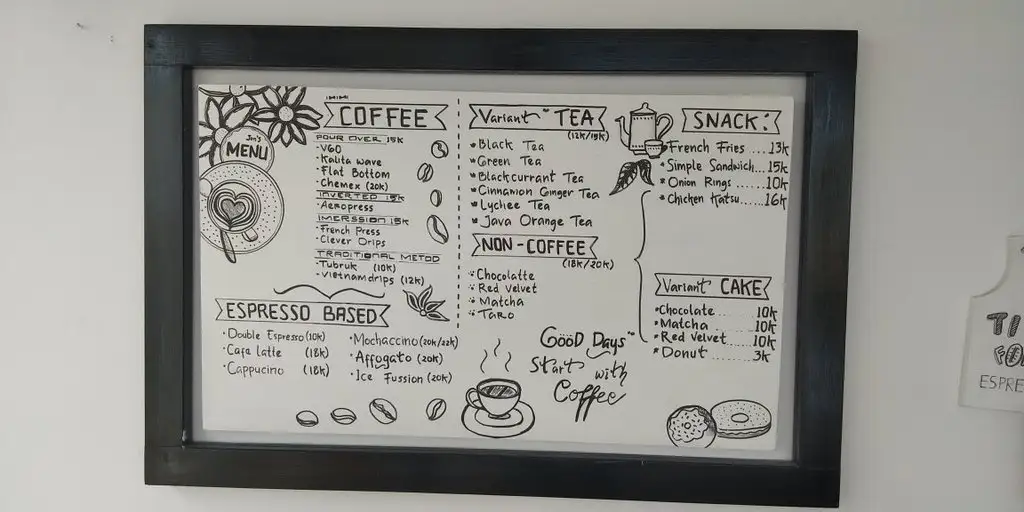 Jim's
MENU
COFFEE
POUR OVER 15K
V60
Kalita wave
Flat Bottom
Chemex (20k)
INVERTED 15K
Aeropress
IMERSSION 15K
French Press
Clever Drips
TRADITIONAL METOD
Tubruk (10K)
Vietnamdrips (12k)
ESPRESSO BASED
Double Espresso (10k)
Cafa latte (18k)
Cappucino (18k)
Mochaccino (20k/22k)
Affogato (20k)
Ice Fussion (20k)
Variant TEA
(12k/15k)
Black Tea
Green Tea
Blackcurrant Tea
Cinnamon Ginger Tea
Lychee Tea
Java Orange Tea
NON-COFFEE
(18k/20k)
Chocolatte
Red Velvet
Matcha
Taro
GOOD Days
Start with
Coffee
SNACK
French Fries ....13k
Simple Sandwich...15k
Onion Rings ......10k
Chicken Katsu.....16k
Variant CAKE
Chocolate 10k
Matcha ........10k
Red Velvet.......10k
Donut ........3k
ESPRE